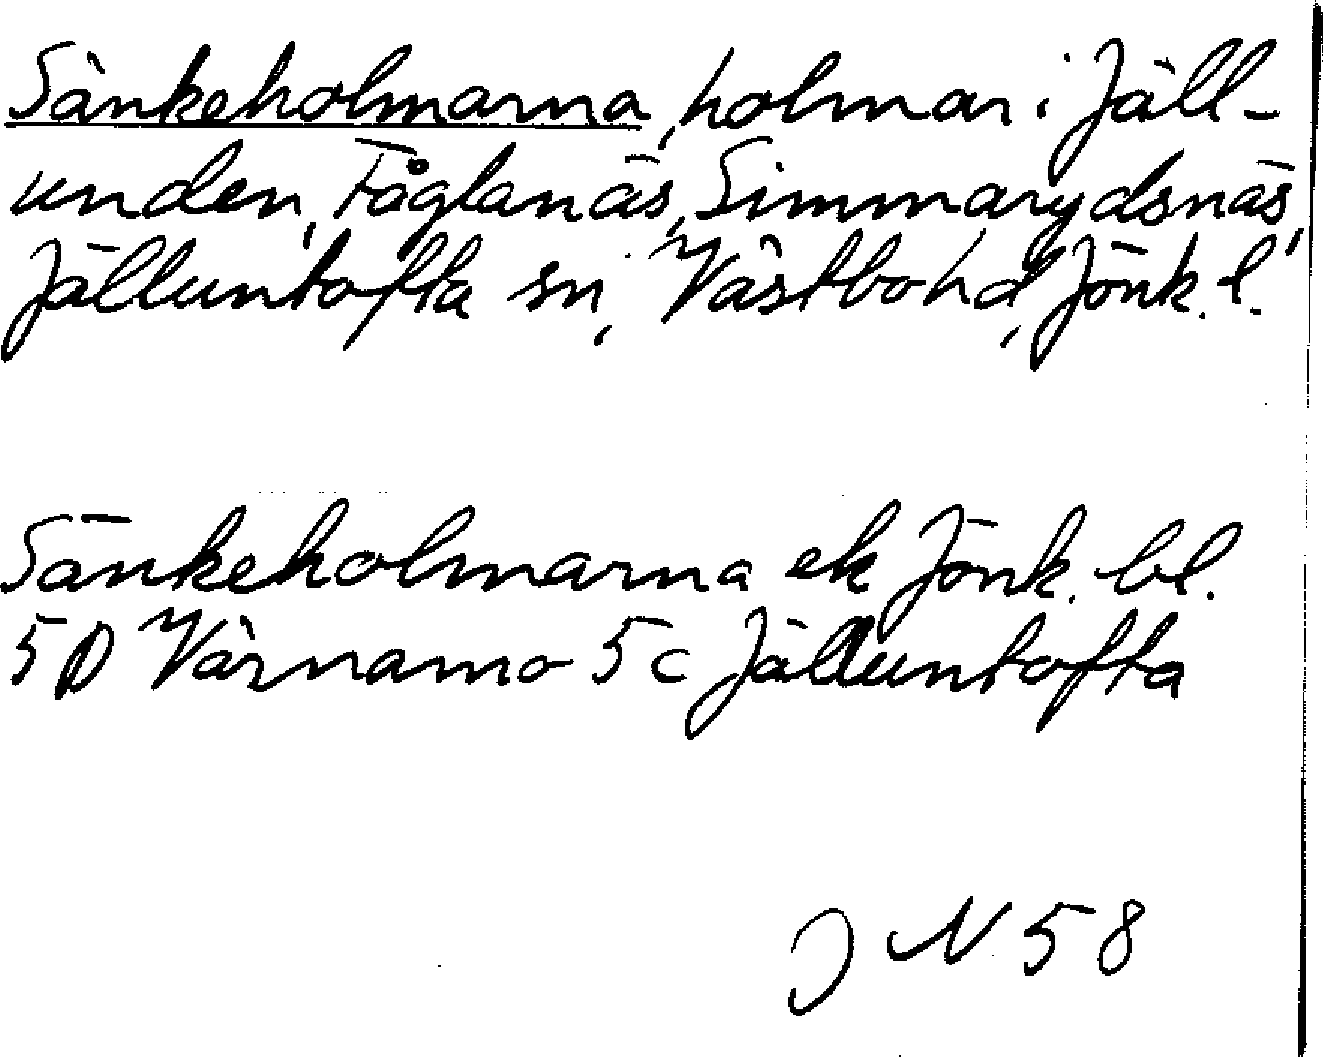 Sänkeholmarna, holmar i Jäll-
unden, Fåglanäs, Simmarydsnäs,
Jälluntofta sn, Västbo hd, Jönk. l.
Sänkeholmarna ek Jönk. bl.
5D Värnamo 5c Jälluntofta
J N 58